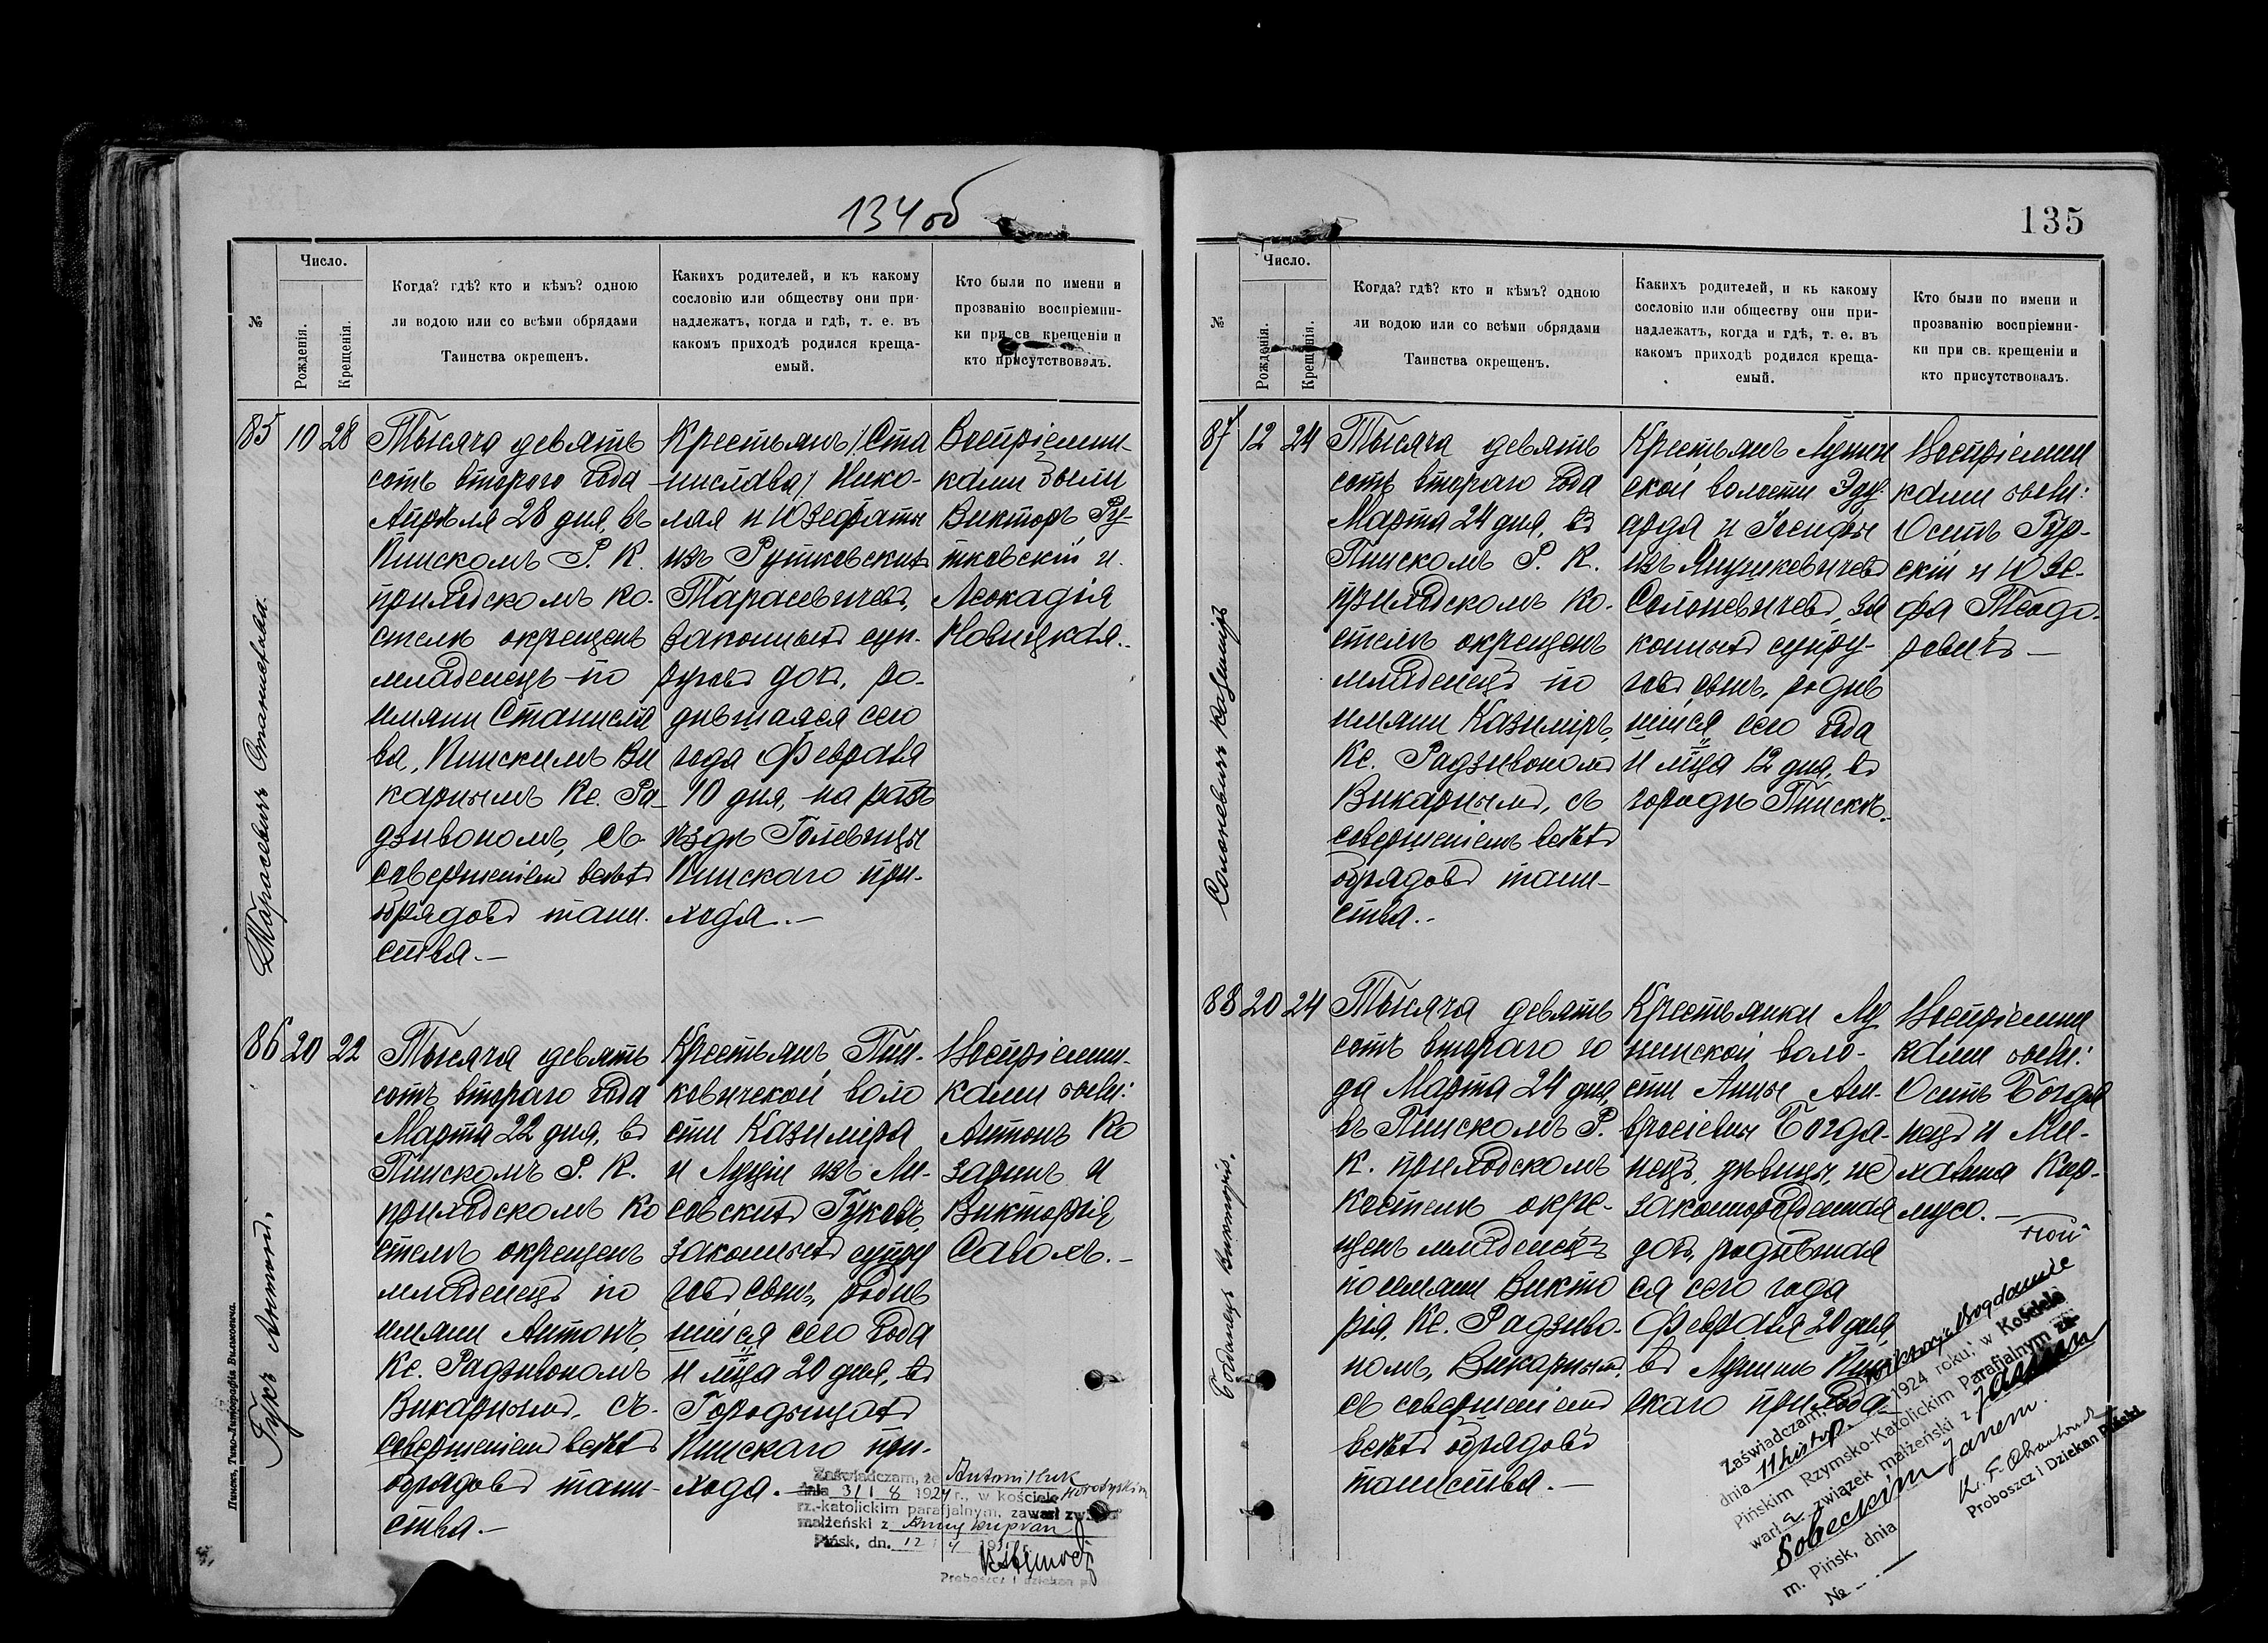 134 об
№
Число.
Рожденія.
Крещенія.
Когда? гдѣ? кто и кѣмъ? одною
ли водою или со всѣми обрядами
Таинства окрещенъ.
Какихъ родителей, и къ какому
сословію или обществу они при-
надлежатъ, когда и гдѣ, т. е. въ
какомъ приходѣ родился креща-
емый.
Кто были по имени и
прозванію воспріемни-
ки при св. крещеніи и
кто присутствовалъ.
85
10
28
Тарасевичъ Станислава.
Тысяча девять
сотъ втораго года
Апрѣля 28 дня, въ
Пинскомъ Р. К.
приходскомъ ко-
стелѣ окрещенъ
младенецъ по
имяни Станисла
ва, Пинскимъ Ви
карнымъ Кс. Ра-
дзивономъ, съ
совершеніемъ всѣхъ
обрядовъ таин-
ства.-
Крестьянъ (Ста
нислава) Нико-
лая и Юзефаты
изъ Рутковскихъ
Тарасевичевъ,
законныхъ суп-
руговъ дочь, ро-
дившаяся сего
года Февраля
10 дня, на разъ
ѣздѣ Голевицы
Пинскаго при-
хода.-
Воспріемни-
ками были
Викторъ Ру-
тковскій и
Леокадія
Новицкая.-
86
20
22
Гукъ Антоній.
Тысяча девять
сотъ втораго года
Марта 22 дня, въ
Пинскомъ Р. К.
приходскомъ ко
стелѣ окрещенъ
младенецъ по
имяни Антонъ,
Кс. Радзивономъ
Викарнымъ, съ
совершеніемъ всѣхъ
обрядовъ таин-
ства.-
Крестьянъ Пин-
ковичской воло
сти Казиміра
и Луціи изъ Ли-
совскихъ Гуковъ,
законныхъ супру
говъ сынъ, родив
шійся сего года
и м͠ца 20 дня, въ
Городыщахъ
Пинскаго при-
хода.-
Воспріемни-
ками были:
Антонъ Ко
заринъ и
Викторія
Савохъ.-
Zaświadczam, że Antoni Huk
dnia 31 I 8 1924 r., w kościele Horodyskim
rz.-katolickim parafjalnym, zawarł zw.
małżeński z Anną
Pińsk, dn. 12
Proboszcz i dziekan
Пинскъ, Типо-Литографія Вильковича.
135
№
Число.
Рожденія.
Крещенія.
Когда? гдѣ? кто и кѣмъ? одною
ли водою или со всѣми обрядами
Таинства окрещенъ.
Какихъ родителей, и къ какому
сословію или обществу они при-
надлежатъ, когда и гдѣ, т. е. въ
какомъ приходѣ родился креща-
емый.
Кто были по имени и
прозванію воспріемни-
ки при св. крещеніи и
кто присутствовалъ.
87
12
24
Солоневичъ Казиміръ
Тысяча девять
сотъ втораго года
Марта 24 дня, въ
Пинскомъ Р. К.
приходскомъ ко-
стелѣ окрещенъ
младенецъ по
имяни Казиміръ,
Кс. Радзивономъ
Викарнымъ, съ
совершеніемъ всѣхъ
обрядовъ таин-
ства.-
Крестьянъ Лунин
ской волости Эду-
арда и Іосифы
изъ Янушкевичевъ
Солоневичевъ, за
конныхъ супру-
говъ сынъ, родив
шійся сего года
и м͠ца 12 дня, въ
городѣ Пинскѣ.
Воспріемни
ками были:
Осипъ Гур-
скій и Юзе-
фа Теодо-
ровичъ -
88
20
24
Богданецъ Викторія.
Тысяча девять
сотъ втораго го
да Марта 24 дня,
въ Пинскомъ Р.
К. приходскомъ
костелѣ окре-
щенъ младенецъ
по имяни Викто
рія, Кс. Радзиво-
номъ, Викарнымъ,
съ совершеніемъ
всѣхъ обрядовъ
таинства.-
Крестьянки Лу
нинской воло-
сти Анны Ам-
вросіевны Богда-
нецъ, дѣвицы, не
законнорожденная
дочь, родившая
ся сего года
Февраля 20 дня,
въ Лунинѣ Пин
скаго прихода.
Воспріемни
ками были:
Осипъ Богда
нецъ и Ми-
халина Кер-
мусо.-
Zaświadczam,
dnia 11 listop. 1924 roku, w Kościele
Pińskim Rzymsko-Katolickim Parafjalnym za-
warła związek małżeński z Janem
Sobeckim Janem.
m. Pińsk, dnia
№
Proboszcz i Dziekan piński